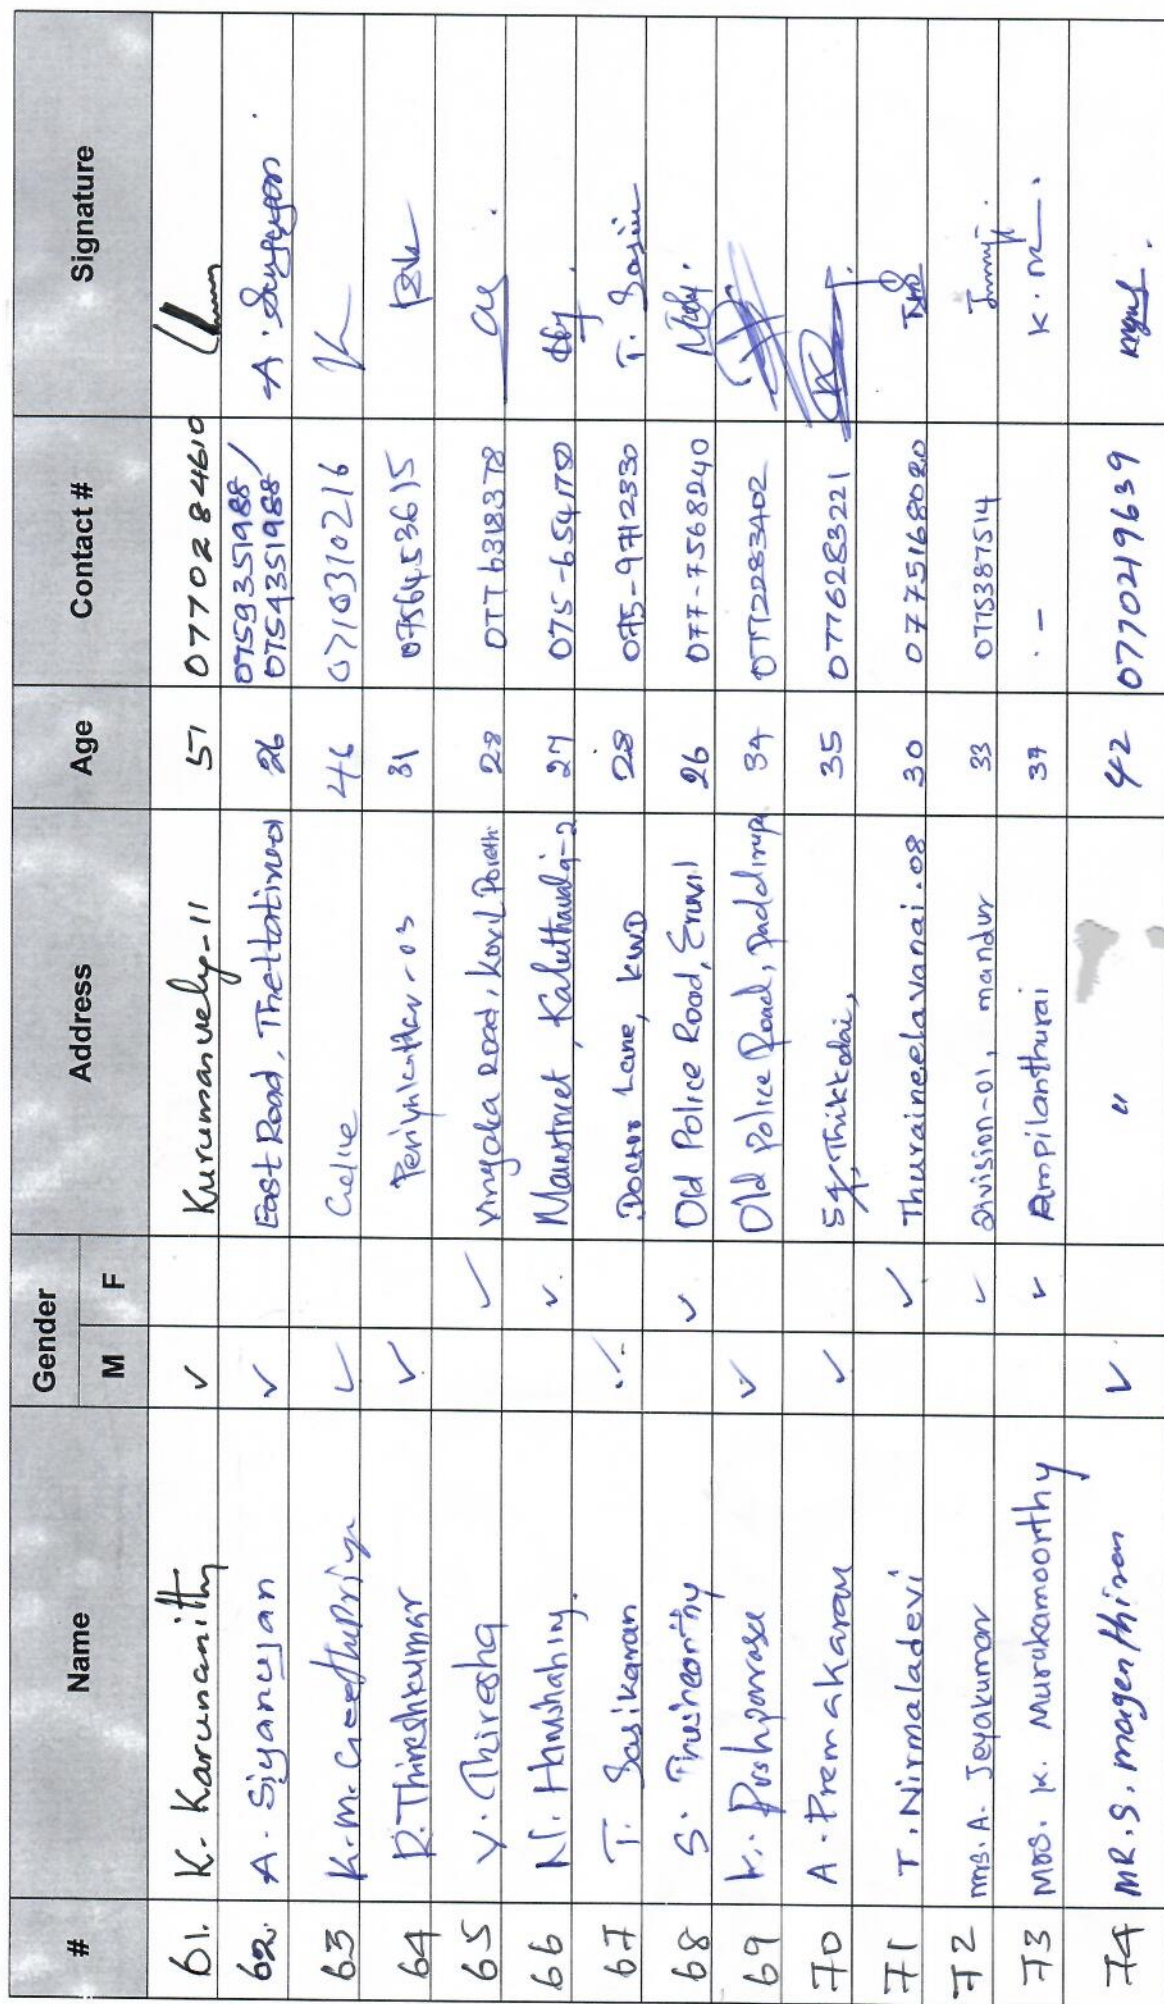 # Name Gender Address Age Contact # Signature
M F
61. K. Karunanithy ✓ Kurumanvely-11 51 0770284610
62. A. Siyanujan ✓ East Road, Thettativu 26 0759351988/
0754351988/
63 K.M. ✓ 46 0710310216 K
64 R. Thineshkumar ✓ 31 0756453615
65 Y. Thiresha ✓ Road, Kovil 28 0776318378
66 N. Hamshahiny. ✓ Mainstreet, Kaluthavalai-2 27 075-6541750
67 T. Sasikaran ✓ Doctor Lane, KWD 28 075-9712330 T.
68 S. ✓ Old Police Road, Eruvil 26 077-7568240
69 K. Pushparasa ✓ Old Police Road, 34 0772283402
70 A. Premakaran ✓ Thikkodai, 35 0776283221
71 T. Nirmaladevi ✓ Thuraineelavanai.08 30 0775168020
72 Mrs. A. Jeyakumar ✓ Division-01, mandur 33 0775387514
73 Mrs. K. Murukamoorthy ✓ Ampilanthurai 37 . - K.
74 MR.S. magenthiran ✓ " 42 0770219639